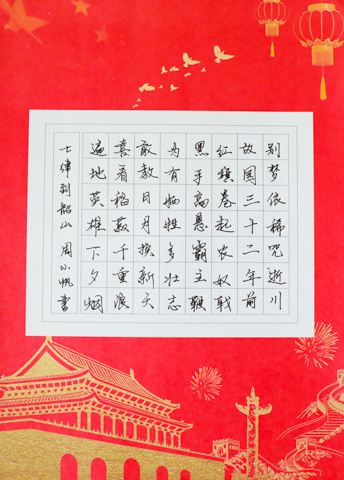 别梦依稀咒逝川
故园三十二年前
红旗卷起农奴戟
黑手高悬霸主鞭
为有牺牲多壮志
敢教日月换新天
喜看稻菽千重浪
遍地英雄下夕烟
七律到韶山 周小帆書